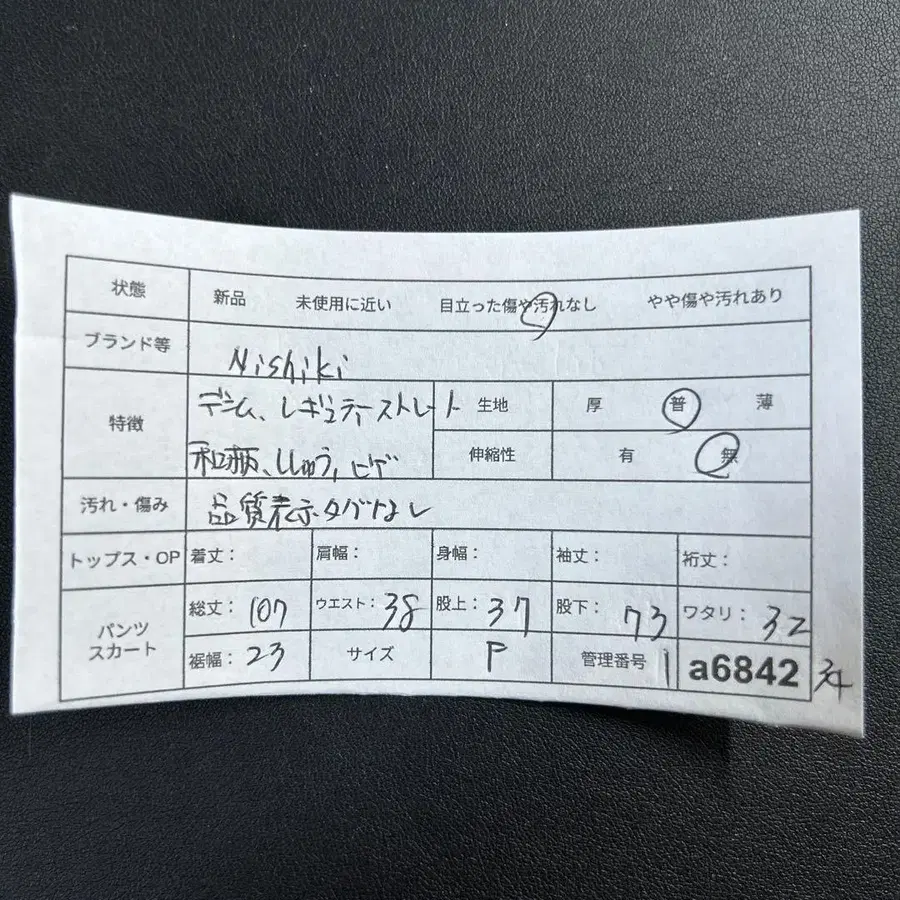 状態 新品 未使用に近い 目立った傷や汚れなし やや傷や汚れあり
ブランド等 Nishiki
特徴 デニム、レギュラーストレート 生地 厚 普 薄
和柄、ししゅう、ヒゲ 伸縮性 有 無
汚れ・傷み 品質表示タグなし
トップス・OP 着丈: 肩幅: 身幅: 袖丈: 裄丈:
パンツ スカート 総丈: 107 ウエスト: 38 股上: 37 股下: 73 ワタリ: 32
裾幅: 23 サイズ P 管理番号 a6842